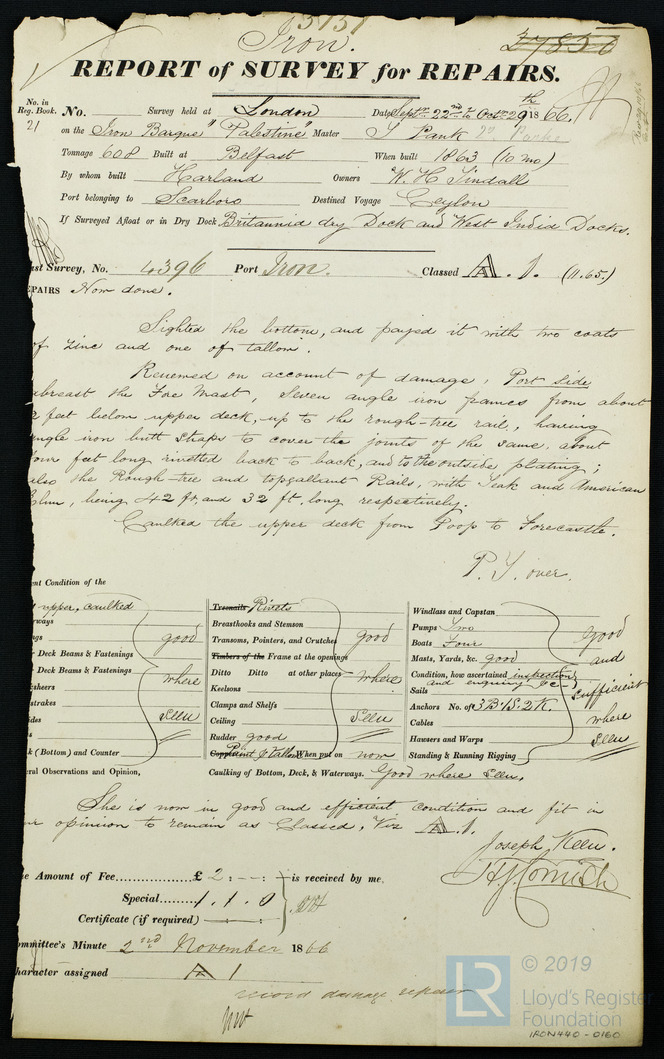 5131
Iron.
27850
REPORT of SURVEY for REPAIRS.
No. in
Reg. Book.
21
No. Survey held at London Date Septr. 22nd to Octr. 29th 1866.
on the Iron Barque "Palestine" Master J Pank
Tonnage 608 Built at Belfast When built 1863 (10 mo)
By whom built Harland Owners W. H. Tindall
Port belonging to Scarboro Destined Voyage Ceylon
If Surveyed Afloat or in Dry Dock Britannia dry Dock and West India Docks.
ast Survey, No. 4396 Port Iron. Classed A. 1. (11.65)
EPAIRS Now done.
Sighted the bottom, and payed it with two coats
of zinc and one of tallow.
Renewed on account of damage, Port Side
abreast the Fore Mast, Seven angle iron frames from about
2 feet below upper deck, up to the rough-tree rail, having
angle iron butt straps to cover the joints of the same, about
four feet long rivetted back to back, and to the outside plating;
also the Rough-tree and topgallant Rails, with Teak and American
Elm, being 42 ft, and 32 ft. long respectively.
Caulked the upper deck from Poop to Forecastle.
P. T. over.
ent Condition of the
upper, caulked
rways
gs
Deck Beams & Fastenings
Deck Beams & Fastenings
sheers
strakes
ides
s
k (Bottom) and Counter
good
where
seen
Treenails Rivets
Breasthooks and Stemson
Transoms, Pointers, and Crutches
Timbers of the Frame at the openings
Ditto Ditto at other places
Keelsons
Clamps and Shelfs
Ceiling
Rudder good
Copper Paint & Tallow When put on now
good
where
seen
Caulking of Bottom, Deck, & Waterways. Good where seen.
Windlass and Capstan
Pumps Two
Boats Four
Masts, Yards, &c. good
Condition, how ascertained inspection
and enquiry &c
Sails
Anchors No. of 3B. 1S. 2K.
Cables
Hawsers and Warps
Standing & Running Rigging
Good
and
sufficient
where
seen
eral Observations and Opinion,
She is now in good and efficient condition and fit in
ur opinion to remain as Classed, Viz A. 1.
Joseph Keen.
H J Cornish
e Amount of Fee............... £ 2 : - : - is received by me,
Special......... 1 . 1 . 0
Certificate (if required)
ommittee's Minute 2nd November 1866
haracter assigned A 1
record damage repair
LR
© 2019
Lloyd's Register
Foundation
IRON440-0160